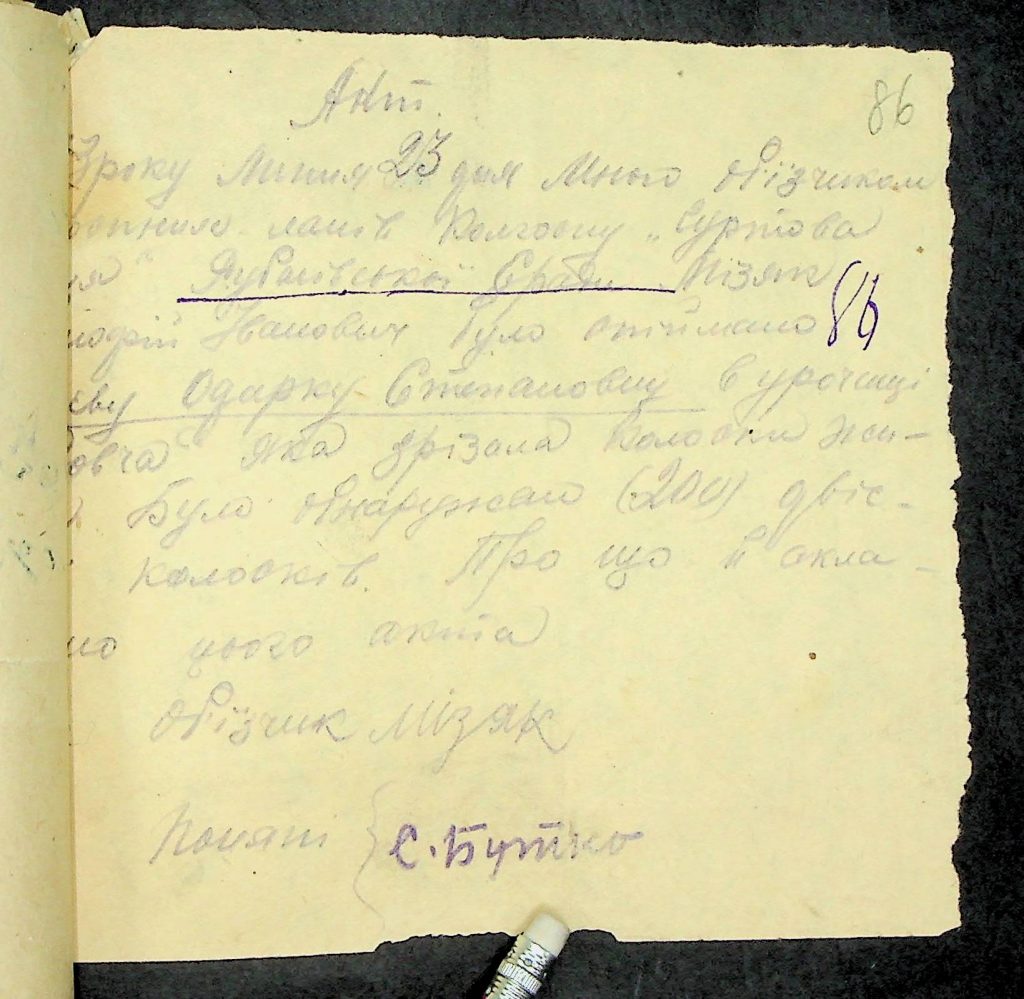 Акт.
86
3 року Липня 23 дня Мною обїзчиком
ланів Колгоспу „Гуртова
ця" Сради Мізяк
86
Івановичь було спіймано
єву Одарку Степановну в урочищі
овча" яка зрізала колоски жи-
Було обнаружено (200) двіс-
колосків. Про що й скла-
но цього акта
Обїзчик Мізяк
Поняті { С. Бутко